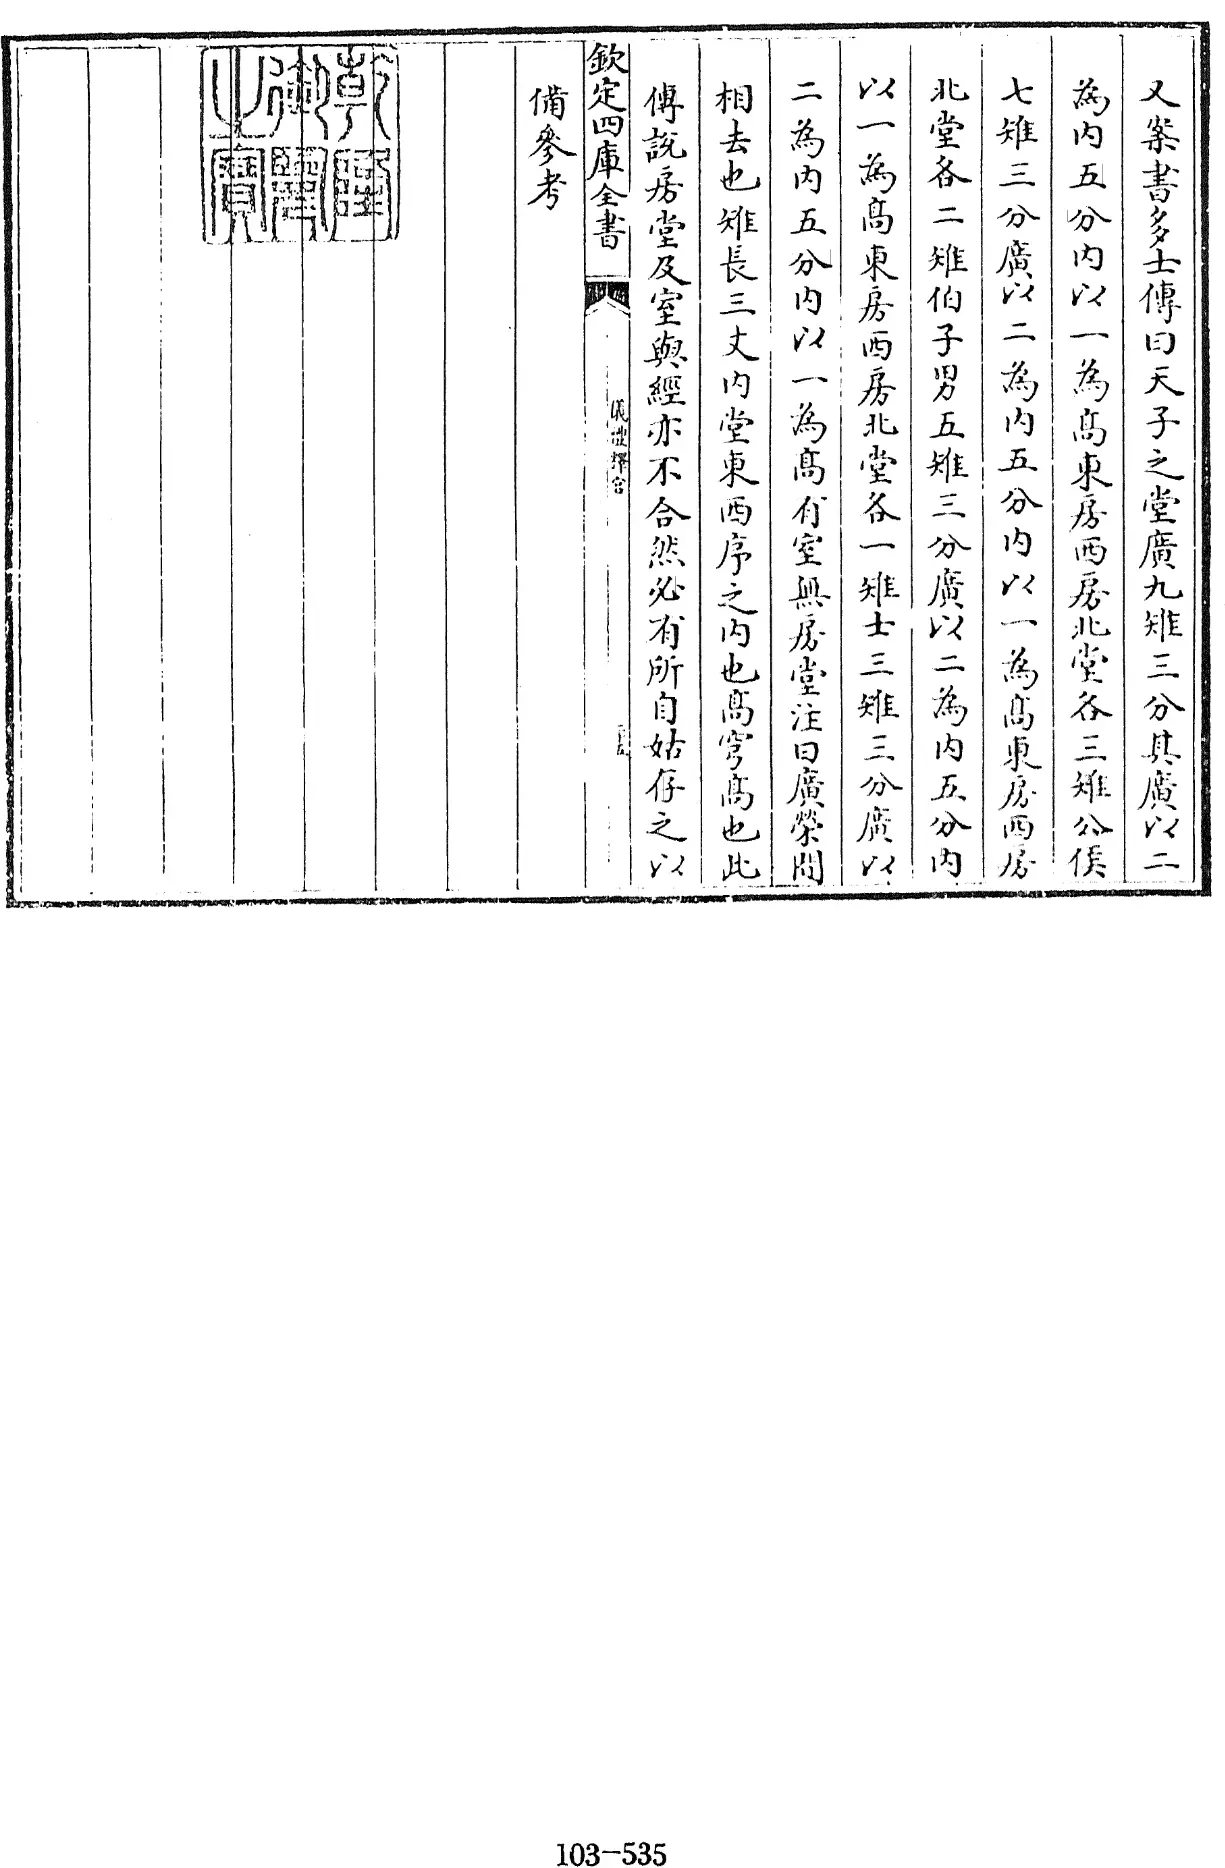 又案書多士傳曰天子之堂廣九雉三分其廣以二
為内五分内以一為髙東房西房北堂各三雉公侯
七雉三分廣以二為内五分内以一為髙東房西房
北堂各二雉伯子男五雉三分廣以二為内五分内
以一為髙東房西房北堂各一雉士三雉三分廣以
二為内五分内以一為髙有室無房堂注曰廣榮間
相去也雉長三丈内堂東西序之内也髙穹髙也此
傳說房堂及室與經亦不合然必有所自姑存之以
欽定四庫全書
儀禮釋宫
備參考
乾隆御覽之寶
103-535